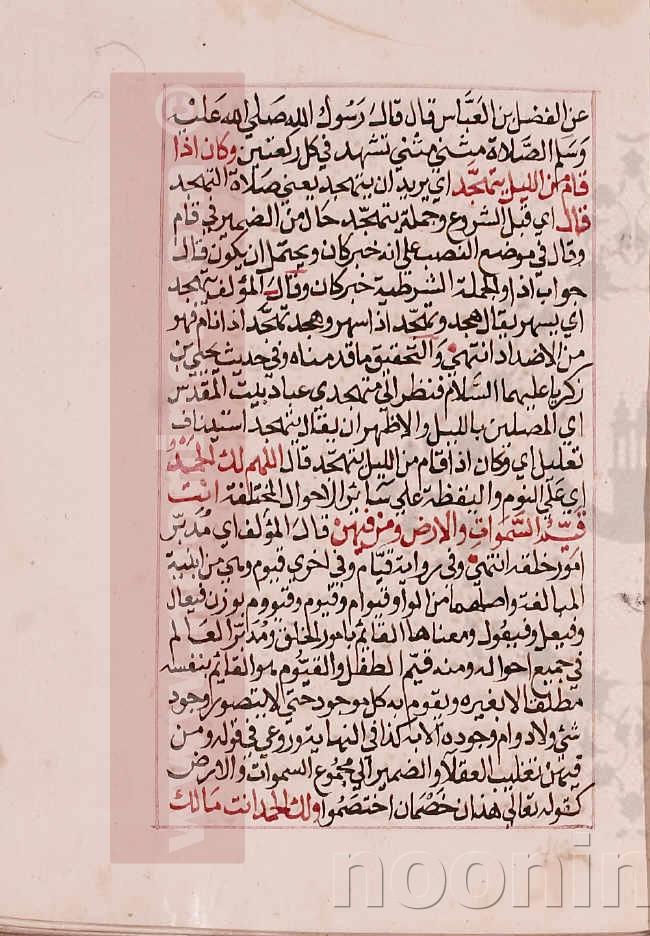 عن الفضل بن العَبَّاس قال قال رَسُولُ الله صَلي الله عَليْه
وَسَلم الصَّلاة مَثْني مَثْني تشهد في كل ركعتين وكان اذا
قام من الليل يتهجَّد اي يريد ان يتهجد يعني صَلاة التهجد
قال اي قبل الشروع وجملة يتهجّد حال من الضمير في قام
وقال في موضع النصب علي انه خبر كان ويحتمل ان يكون قال
جواب اذا والجملة الشرطية خبر كان وقال المؤلف يتهجد
اي يسهر يقال هجد وتهجّد اذا سهر وهجد وتهجّد اذا نام فهو
من الاضداد انتهيٰ والتحقيق ما قدمناه وفي حديث يحيي بن
زكريا عليهما السَّلام فنظر الي متهجدي عباد بيت المقدس
اي المصلين بالليل والاظهر ان يقال يتهجد استيناف
تعليل اي وكان اذا قام من الليل يتهجّد قال اللهم لك الحمد
اي عَلي النوم واليقظة علي سَائر الاحوال المختلفة انت
قيّم السَّمَوات والارض ومن فيهن قال المؤلف اي مُدبّر
امور خلقه انتهي وفي رواية قيّام وفي اخري قيوم وهي من ابنية
المبالغة واصلهما من الواو قيوام وقيوم وقيووم بوزن فيعال
وفيعل وفيعول ومعناها القائم بامور الخلق ومُدبّر العَالم
في جميع احواله ومنه قيّم الطفل والقيّوم هو القائم بنفسه
مطلقا لا بغيره ويقوم به كل موجود حتي لا يتصور وجود
شئ ولا دوام وجوده الا به كذا في النهاية وروعي في قوله ومن
فيهن تغليب العقلا والضمير الي مجموع السموات والارض
كقوله تعالي هذان خَصْمان اختصَمُوا ولك الحمد انت مَالك
noonin